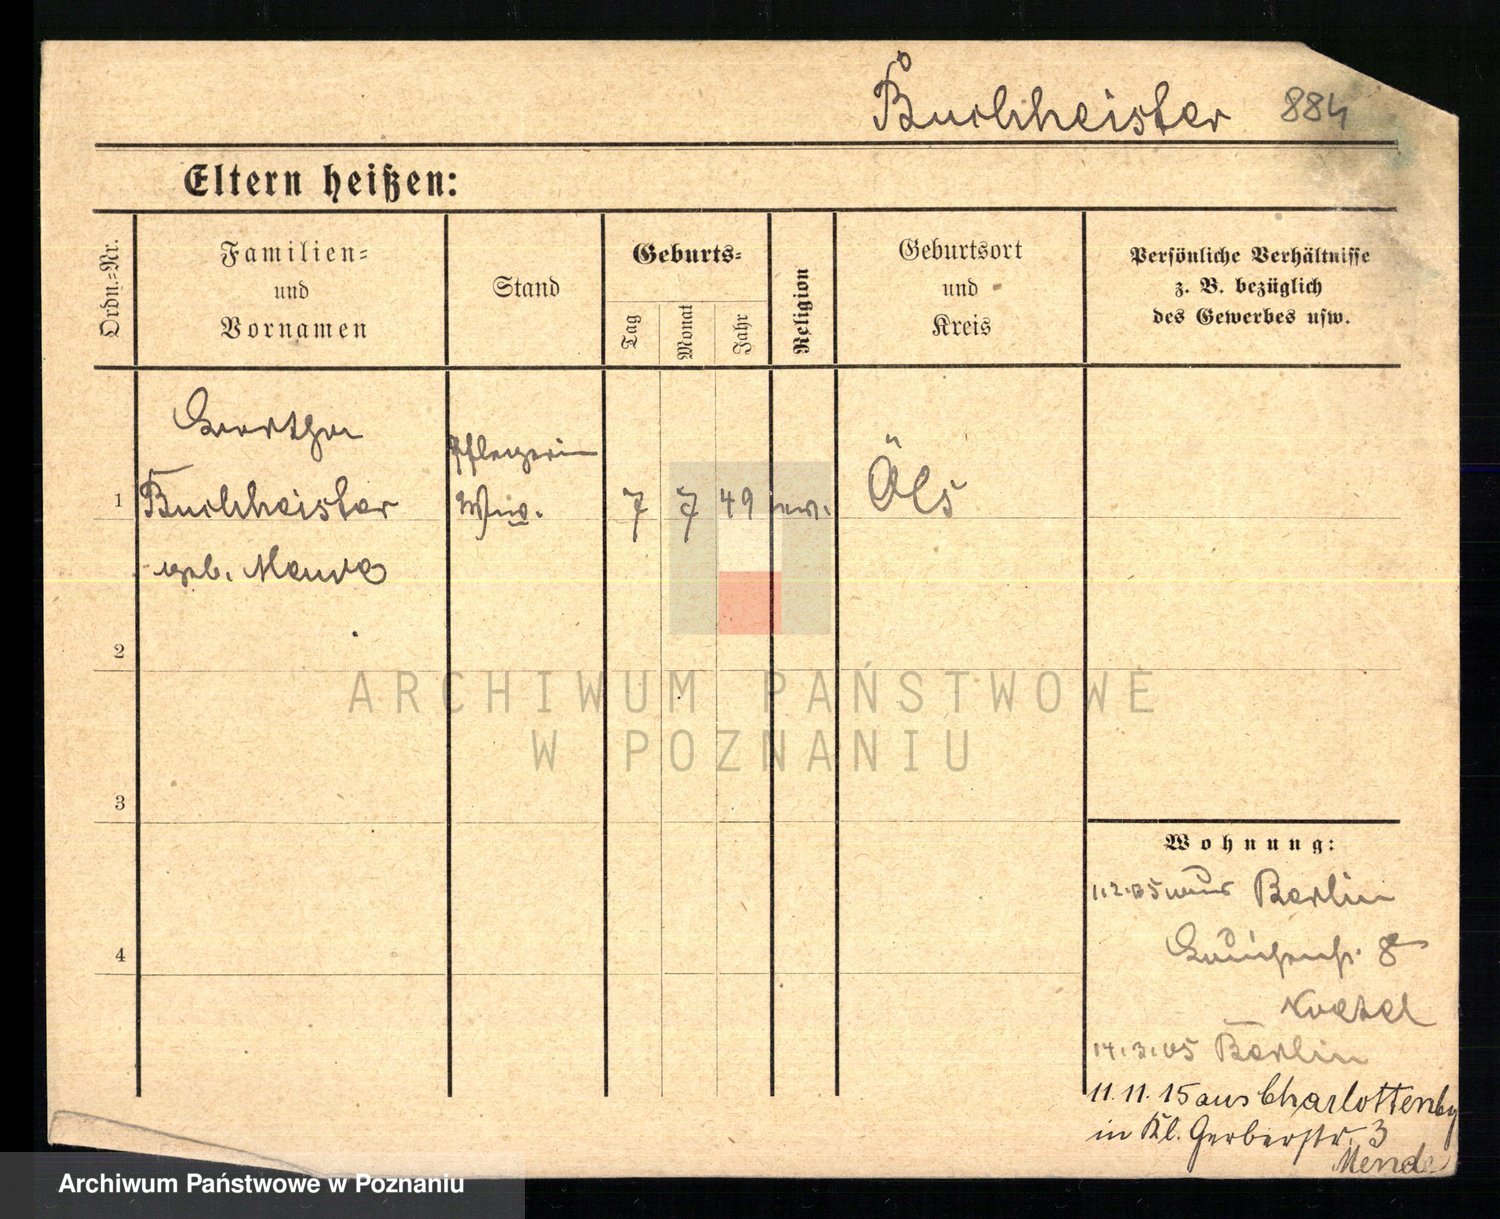 Buchheister 884
Eltern heißen:
Ordn.-Nr.
Familien-
und
Vornamen
Stand
Geburts-
Tag
Monat
Jahr
Religion
Geburtsort
und
Kreis
Persönliche Verhältnisse
z. B. bezüglich
des Gewerbes usw.
Bertha
Pflegerin
1 Buchheister Wwe. 7 7 49 ev. Öls
geb.
2
3
4
Wohnung:
1.2.05 aus Berlin
8
14.3.05 Berlin
11.11.15 aus Charlottenbg
in Kl. Gerberstr. 3
Mende
ARCHIWUM PAŃSTWOWE
W POZNANIU
Archiwum Państwowe w Poznaniu